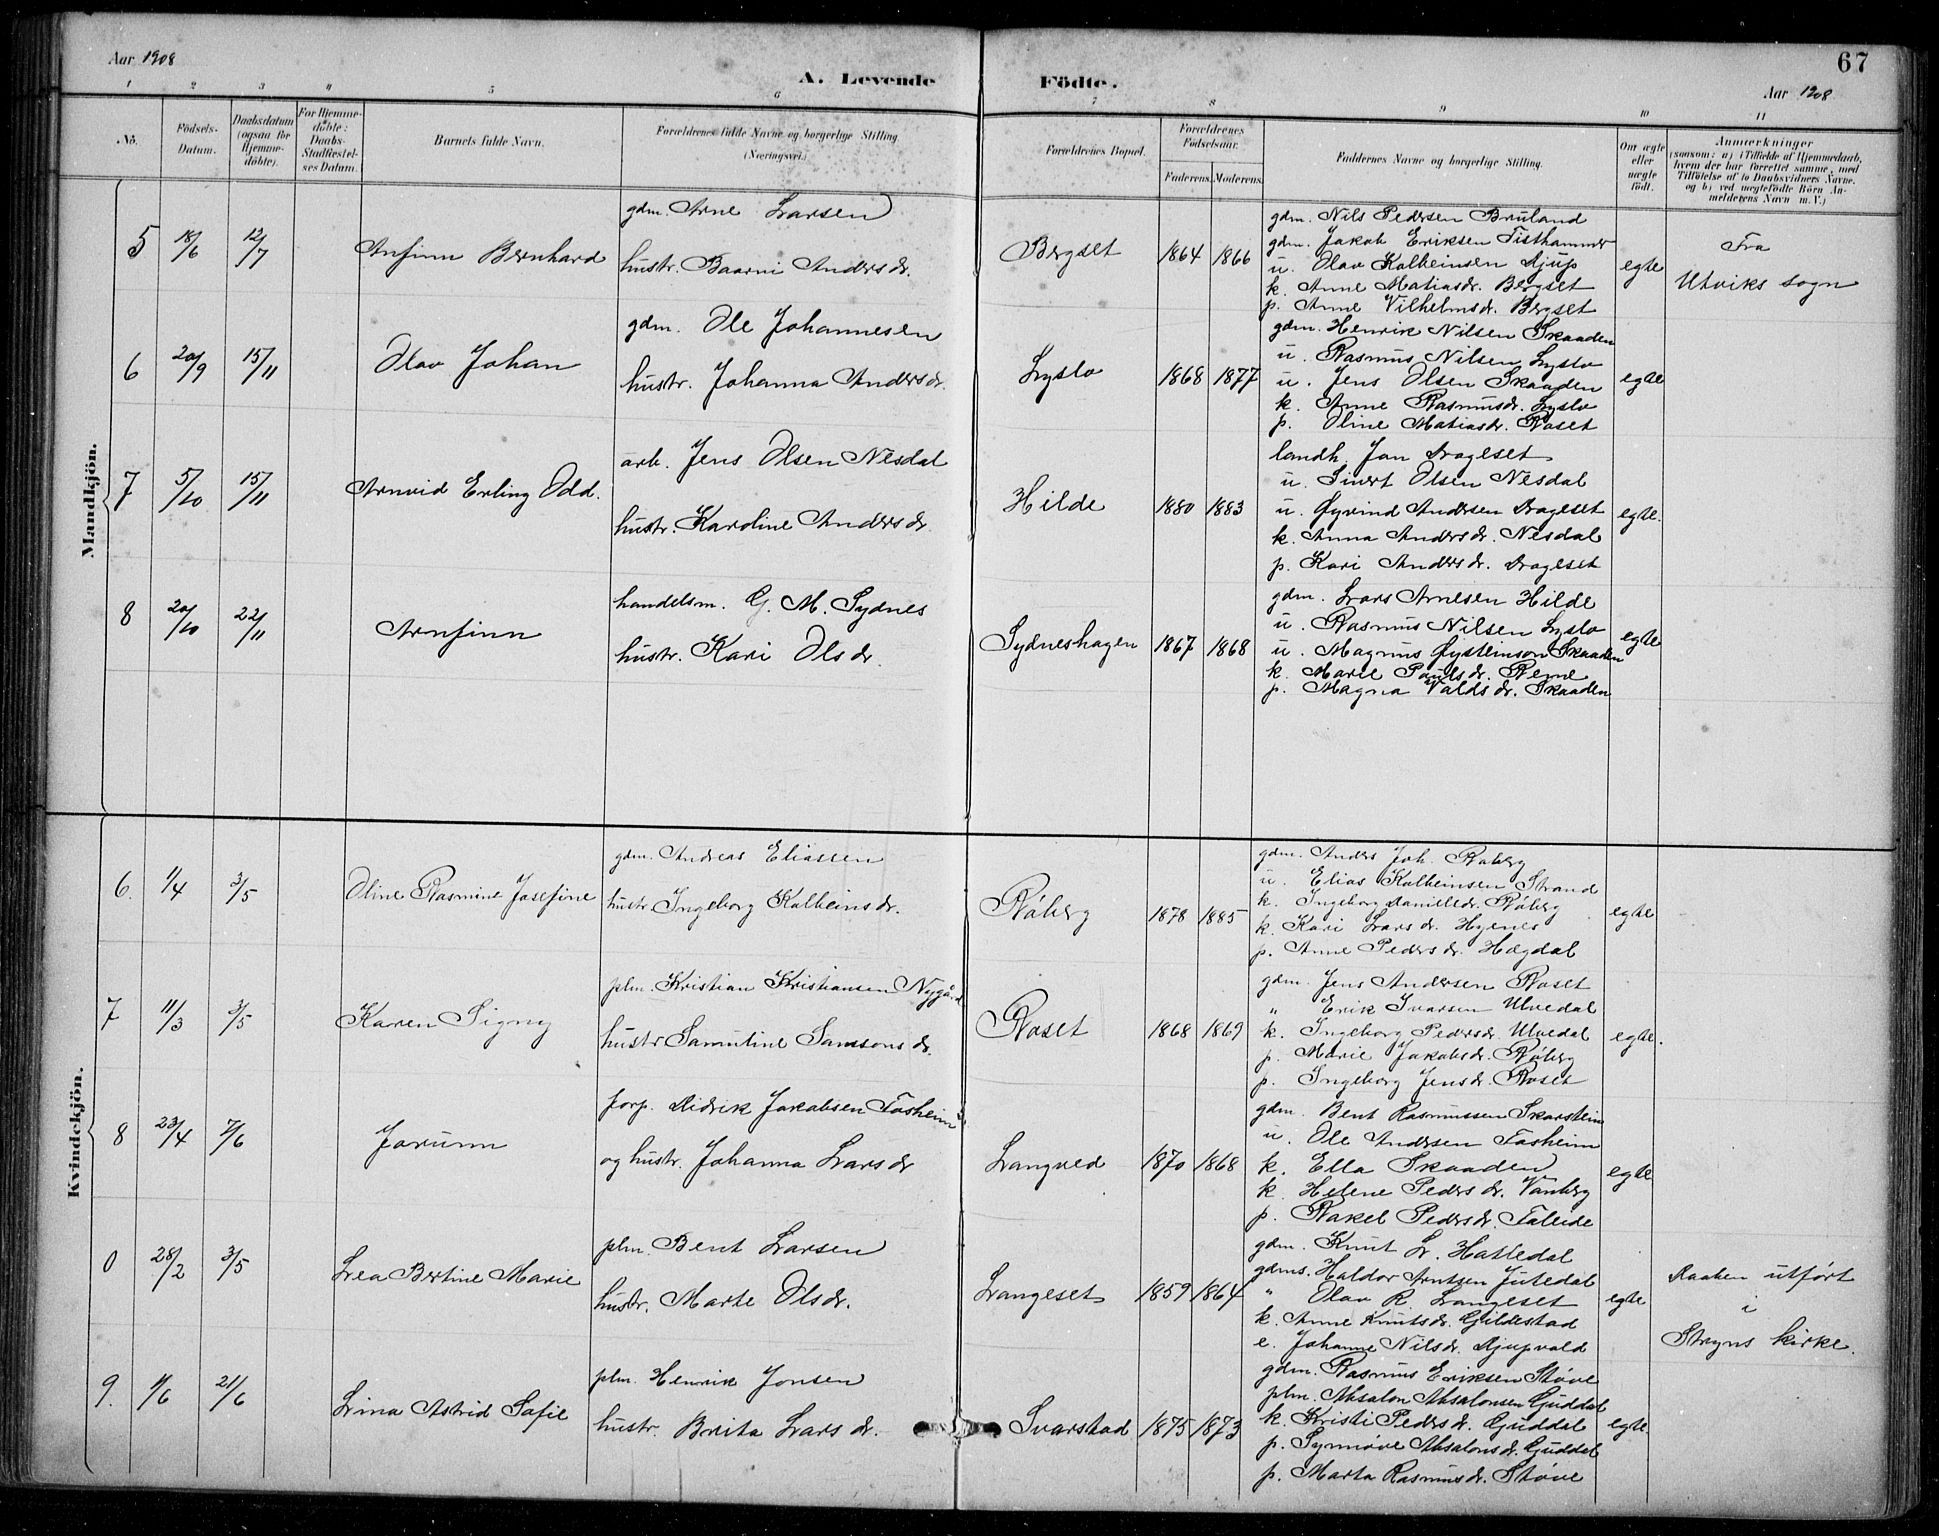 67
Aar 1908
A. Levende Födte.
Aar 1908
1 2 3 4 5 6 7 8 9 10 11
No.
Födsels-Datum.
Daabsdatum (ogsaa for Hjemme-döbte).
For Hjemme-döbte: Daabs-Stadfæstel-ses Datum.
Barnets fulde Navn.
Forældrenes fulde Navne og borgerlige Stilling (Næringsvei.)
Forældrenes Bopæl.
Forældrenes Födselsaar.
Faderens. Moderens.
Faddernes Navne og borgerlige Stilling.
Om ægte eller uægte födt.
Anmærkninger
(saasom: a) i Tilfælde af Hjemmedaab, hvem der har forrettet samme, med Tilföielse af to Daabsvidners Navne. og b) ved uægtefödte Börn An-melderens Navn m. V.)
Mandkjön.
5 18/6 12/7 Anfinn Bernhard
gdm. Arne Larsen
hustr. Baarni Andersdr.
Bergset 1864 1866
gdm. Nils Pedersen Bruland
gdm. Jakob Eriksen Tisthammer
u. Olav Kolbeinsen Djup
k. Anne Matiasdr. Bergset
p. Anne Vilhelmsdr. Bergset
egte
Fra
Utviks sogn
6 20/9 15/11 Olav Johan
gdm. Ole Johannesen
hustr. Johanna Andersdr.
Lyslo 1868 1877
gdm. Henrik Nilsen Skaaden
u. Rasmus Nilsen Lyslo
u. Jens Olsen Skaaden
k. Anne Rasmusdr. Lyslo
p. Oline Matiasdr. Roset
egte
7 5/10 15/11 Arnvid Erling Odd.
arb. Jens Olsen Nesdal
hustr. Karoline Andersdr.
Hilde 1880 1883
landh. Jan Drageset
u. Sivert Olsen Nesdal
u. Øyvind Andersen Drageset
k. Anna Andersdr. Nesdal
p. Kari Andersdr. Drageset
egte.
8 20/10 22/11 Arnfinn
handelsm. G. M. Sydnes
hustr. Kari Olsdr.
Sydneshagen 1867 1868
gdm. Lars Arnesen Hilde
u. Rasmus Nilsen Lyslo
u. Magnus Øysteinson Skaaden
k. Marie Paulsdr. Reme
p. Magna Valdsdr. Skaaden
egte
Kvindekjön.
6. 1/4 3/5 Oline Rasmine Josefine
gdm. Andreas Eliassen
hustr. Ingeborg Kolbeinsdr.
Røberg 1878 1885
gdm. Anders Joh. Røberg
u. Elias Kolbeinsen Strand
k. Ingeborg Danielsdr. Røberg
k. Kari Larsdr. Hyenes
p. Anne Pedersdr. Hægdal
egte
7 11/3 3/5 Karen Signy
plm. Kristian Kristiansen Nygård
hustr Samuline Samsonsdr.
Roset 1868 1869
gdm. Jens Andersen Roset
" Erik Ivarsen Ulvedal
k. Ingeborg Pedersdr. Ulvedal
p. Marie Jakobsdr. Røberg
p. Ingeborg Jensdr. Roset
egte.
8 23/4 7/6 Jorunn
forp. Didrik Jakobsen Fosheim
og hustr. Johanna Larsdr
Langved 1870 1868
gdm. Bent Rasmussen Skarstein
u. Ole Andersen Fosheim
k. Ella Skaaden
k. Helene Pedersdr. Vanberg
p. Rakel Pedersdr. Faleide
egte
0 28/2 3/5 Lea Bertine Marie
plm. Bent Larsen
hustr. Marte Olsdr.
Langeset 1859 1864
gdm. Knut L. Hatledal
gdms. Haldor Arntsen Jutedal
" Olav R. Langeset
k. Anne Knutsdr. Gildestad
e. Johanne Nilsdr. Djupvald
egte
Daaben utført
i
Stryns kirke.
9. 1/6 21/6 Lina Astrid Sofie
plm. Henrik Jonsen
hustr. Brita Larsdr.
Svarstad 1875 1873
gdm. Rasmus Eriksen Støve
plm. Absalon Absalonsen Guddal
k. Kristi Pedersdr. Guddal
p. Synnøve Absalonsdr. Guddal
p. Marta Rasmusdr. Støve
egte.